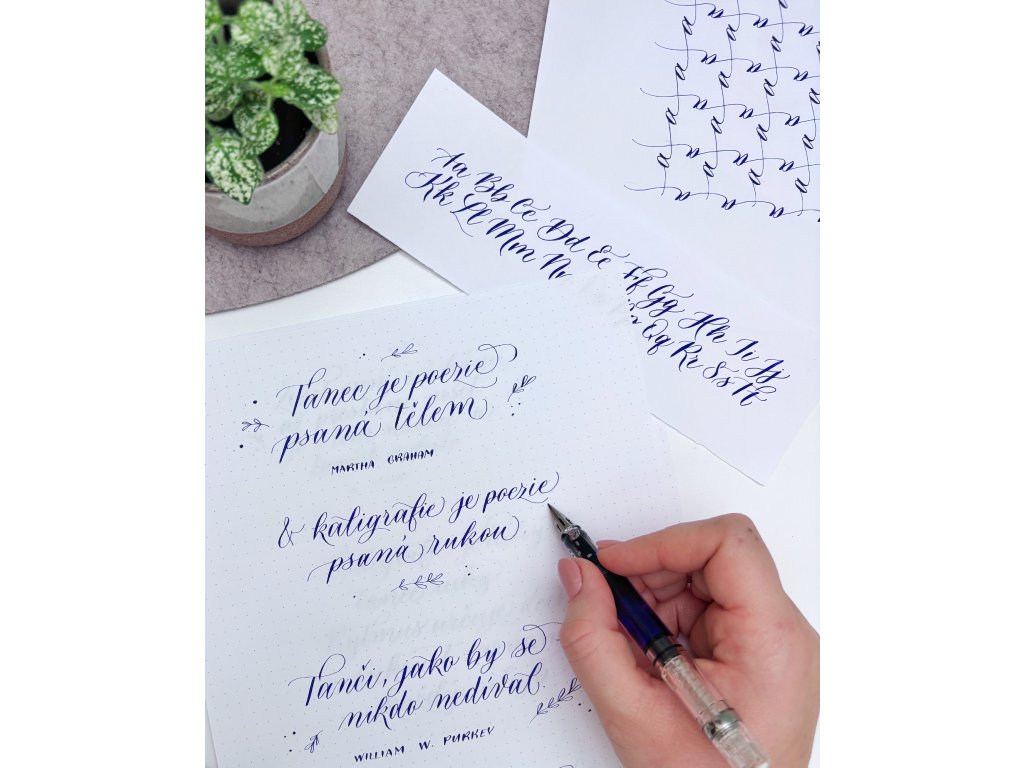 Aa Bb Cc Dd Ee Ff Gg Hh Ii Jj
Kk Ll Mm Nn Qq Rr Ss Tt
Tanec je poezie
psaná tělem
MARTHA GRAHAM
& kaligrafie je poezie
psaná rukou
Tanči, jako by se
nikdo nedíval.
WILLIAM W. PURKEY